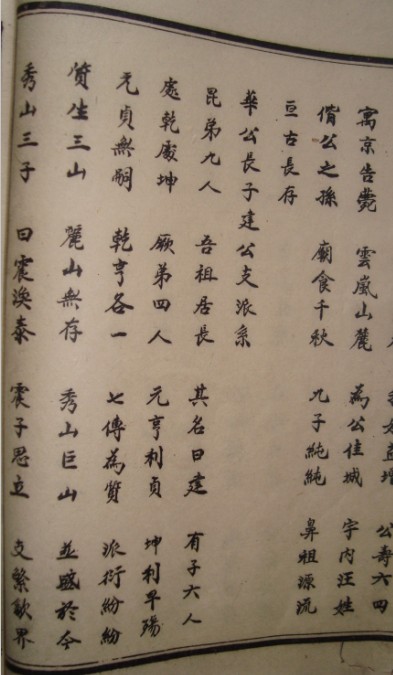 益增 公壽六四
寓京告薨 雲嵐山麓 為公佳城 宇內汪姓
偕公之孫 廟食千秋 九子純純 鼻祖源流
亘古長存
華公長子建公支派系
昆弟九人 吾祖居長 其名曰建 有子六人
處乾處坤 厥弟四人 元亨利貞 坤利早殤
元貞無嗣 乾亨各一 七傳為質 派衍紛紛
質生三山 麗山無存 秀山巨山 並盛於今
秀山三子 曰震渙泰 震子思立 支繁歙界